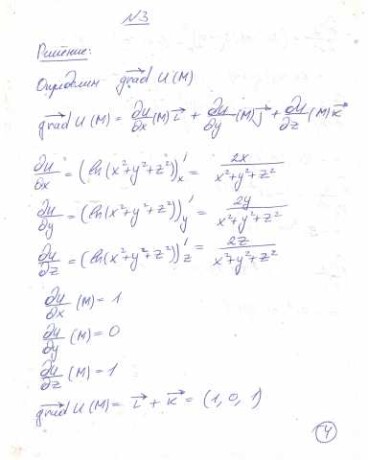 №3
Решение:
Определим grad U(M)
grad U(M) = ∂u/∂x (M) i + ∂u/∂y (M) j + ∂u/∂z (M) k
∂u/∂x = (ln(x²+y²+z²))'x = 2x/(x²+y²+z²)
∂u/∂y = (ln(x²+y²+z²))'y = 2y/(x²+y²+z²)
∂u/∂z = (ln(x²+y²+z²))'z = 2z/(x²+y²+z²)
∂u/∂x (M) = 1
∂u/∂y (M) = 0
∂u/∂z (M) = 1
grad U(M) = i + k = (1, 0, 1)
4